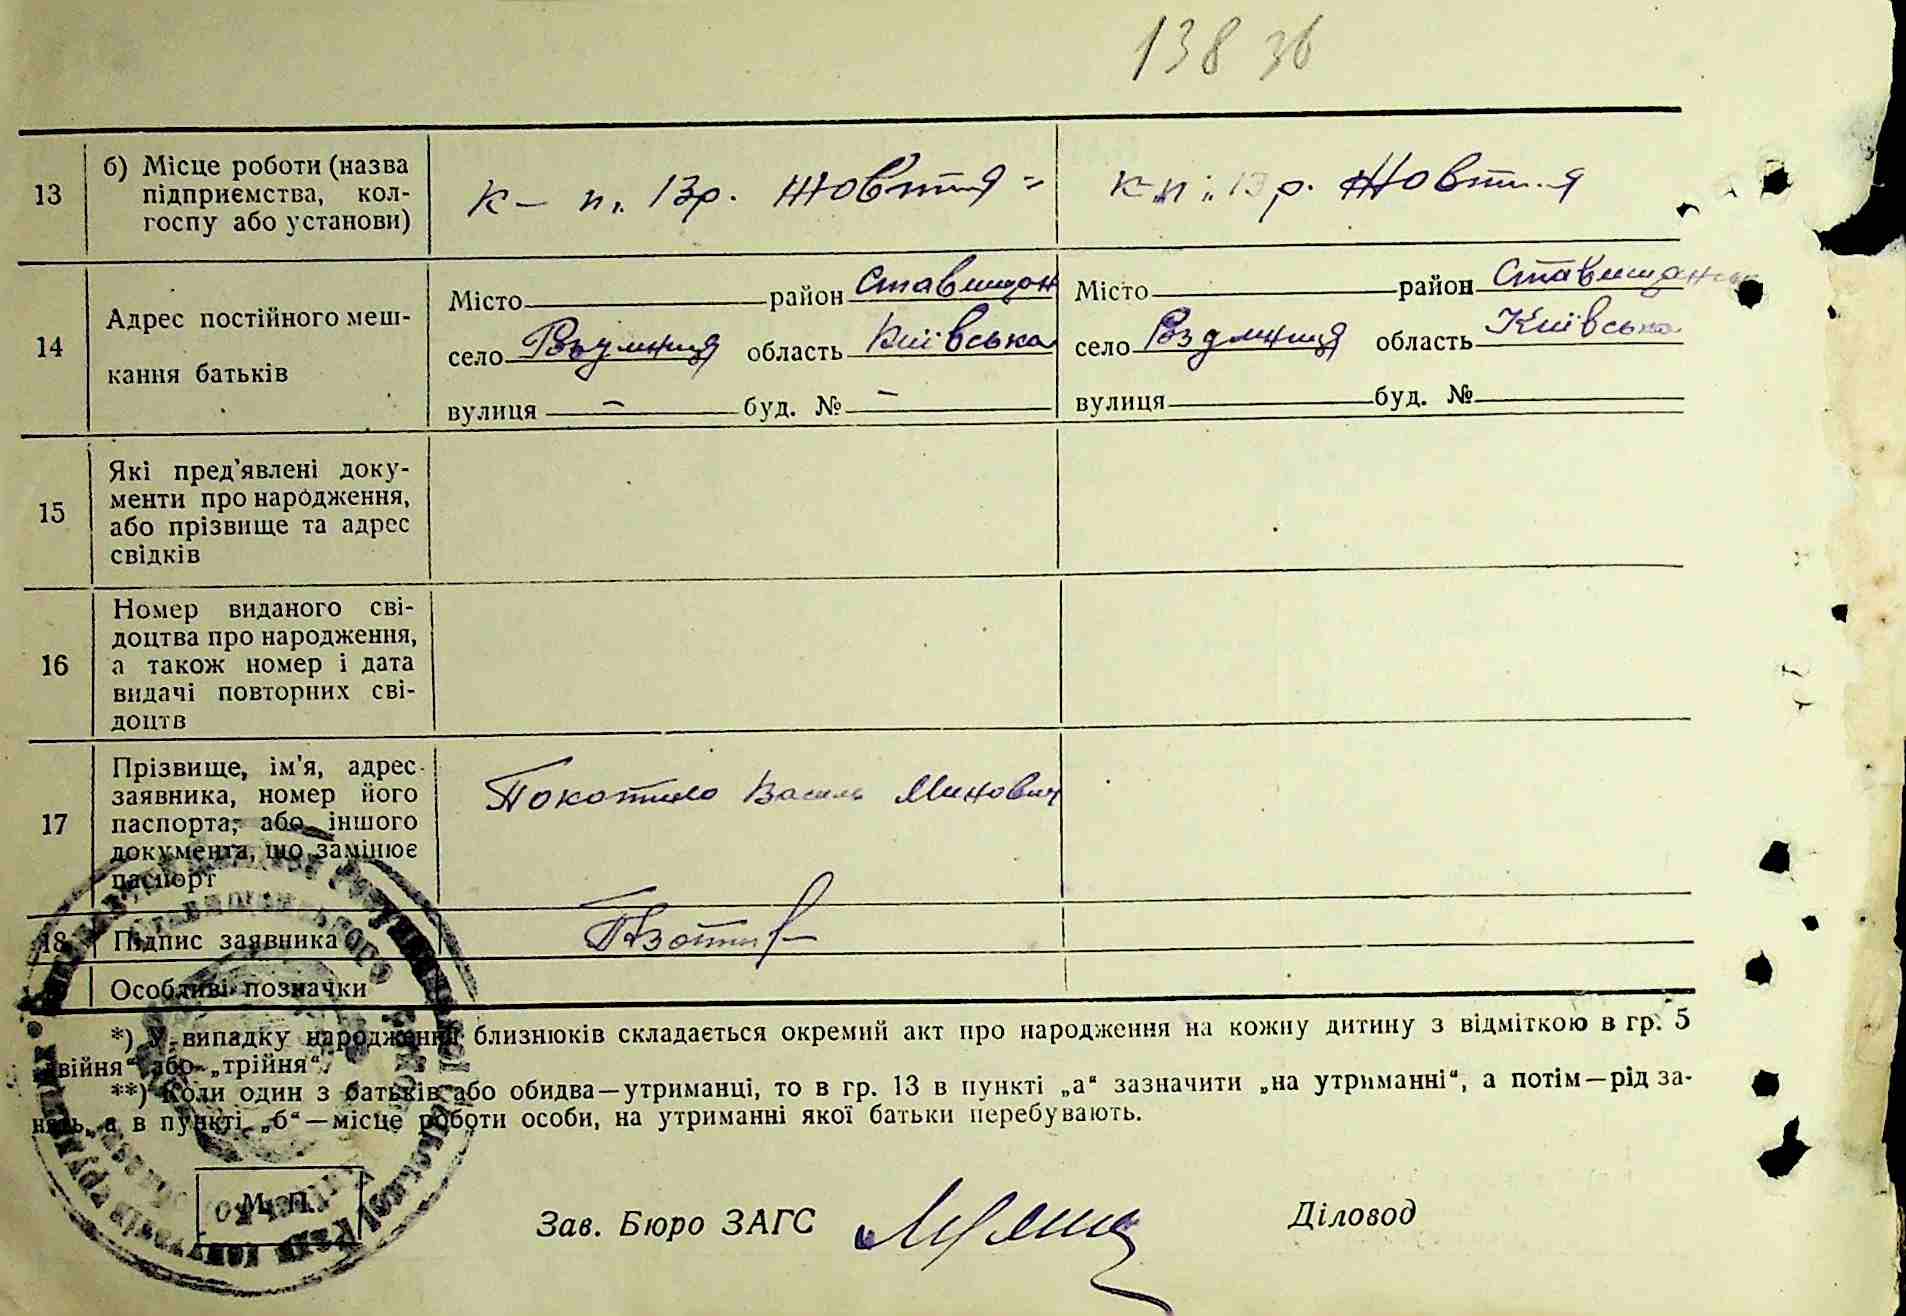 138 зв
13
б) Місце роботи (назва
підприємства, кол-
госпу або установи)
к-п „13 р. Жовтня"
к-п „13 р. Жовтня
14
Адрес постійного меш-
кання батьків
Місто район Ставищан
село область Київська
вулиця — буд. № —
Місто район Ставищанськ
село область Київська
вулиця буд. №
15
Які пред'явлені доку-
менти про народження,
або прізвище та адрес
свідків
16
Номер виданого сві-
доцтва про народження,
а також номер і дата
видачі повторних сві-
доцтв
17
Прізвище, ім'я, адрес
заявника, номер його
паспорта, або іншого
документа, що замінює
паспорт
Покотило Василь Минович
18
Підпис заявника
Особливі позначки
*) У випадку народження близнюків складається окремий акт про народження на кожну дитину з відміткою в гр. 5
двійня" або „трійня".
**) Коли один з батьків або обидва—утриманці, то в гр. 13 в пункті „а" зазначити „на утриманні", а потім—рід за-
нять, а в пункті „б"—місце роботи особи, на утриманні якої батьки перебувають.
М. П.
Зав. Бюро ЗАГС
Діловод